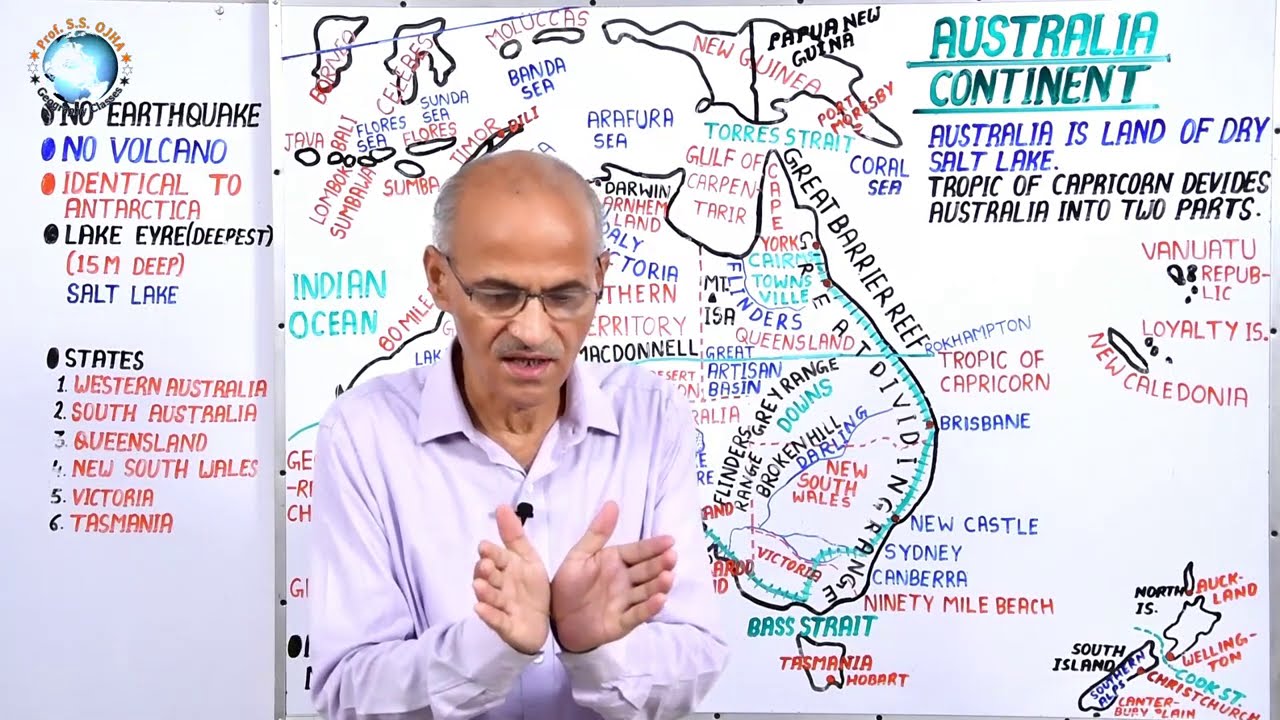 Prof. S.S. OJHA
Geography Classes
NO EARTHQUAKE
NO VOLCANO
IDENTICAL TO
ANTARCTICA
LAKE EYRE(DEEPEST)
(15 M DEEP)
SALT LAKE
STATES
1. WESTERN AUSTRALIA
2. SOUTH AUSTRALIA
3. QUEENSLAND
4. NEW SOUTH WALES
5. VICTORIA
6. TASMANIA
BORNEO
CELEBES
MOLUCCAS
BANDA
SEA
SUNDA
SEA
FLORES
SEA
FLORES
JAVA
BALI
LOMBOK
SUMBAWA
SUMBA
TIMOR
DILI
ARAFURA
SEA
NEW GUINEA
PAPUA NEW
GUINA
PORT
MORESBY
TORRES STRAIT
CORAL
SEA
AUSTRALIA
CONTINENT
AUSTRALIA IS LAND OF DRY
SALT LAKE.
TROPIC OF CAPRICORN DEVIDES
AUSTRALIA INTO TWO PARTS.
INDIAN
OCEAN
80 MILE
LAK
DARWIN
ARNHEM
LAND
DALY
VICTORIA
THERN
ERRITORY
MACDONNELL
DESERT
GULF OF
CARPEN
TARIR
CAPE
YORK
CAIRNS
TOWNS
VILLE
FLINDERS
MT.
ISA
QUEENSLAND
GREAT
ARTISAN
BASIN
GREAT BARRIER REEF
GREAT DIVIDING RANGE
ROKHAMPTON
TROPIC OF
CAPRICORN
BRISBANE
GREYRANGE
DOWNS
FLINDERS
RANGE
BROKENHILL
DARLING
NEW
SOUTH
WALES
VICTORIA
NEW CASTLE
SYDNEY
CANBERRA
NINETY MILE BEACH
BASS STRAIT
TASMANIA
HOBART
VANUATU
REPUB-
LIC
LOYALTY IS.
NEW CALEDONIA
NORTH
IS.
AUCK-
LAND
SOUTH
ISLAND
SOUTHERN
ALPS
WELLING-
TON
COOK ST
CHRISTCHURCH
CANTER-
BURY PLAIN